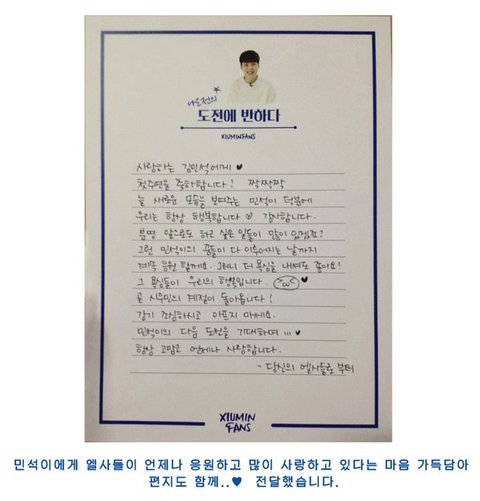 나도전의
도전에 반하다
XIUMINFANS
사랑하는 김민석에게 ♥
첫주연을 축하합니다! 짝짝짝
늘 새로운 모습을 보여주는 민석이 덕분에
우리는 항상 행복합니다 ♡ 감사합니다.
분명 앞으로도 하고 싶은 일들이 많이 있겠죠?
그런 민석이의 꿈들이 다 이루어지는 날까지
계속 응원 할께요. 그러니 더 욕심을 내셔도 좋아요!
그 욕심들이 우리의 행복입니다. ♥
곧 시우민의 계절이 돌아옵니다!
감기 조심하시고 아프지 마세요.
민석이의 다음 도전을 기대하며 ... ♥
항상 고맙고 언제나 사랑합니다.
- 당신의 엘사들로 부터
XIUMIN
FANS
민석이에게 엘사들이 언제나 응원하고 많이 사랑하고 있다는 마음 가득담아
편지도 함께..♥ 전달했습니다.